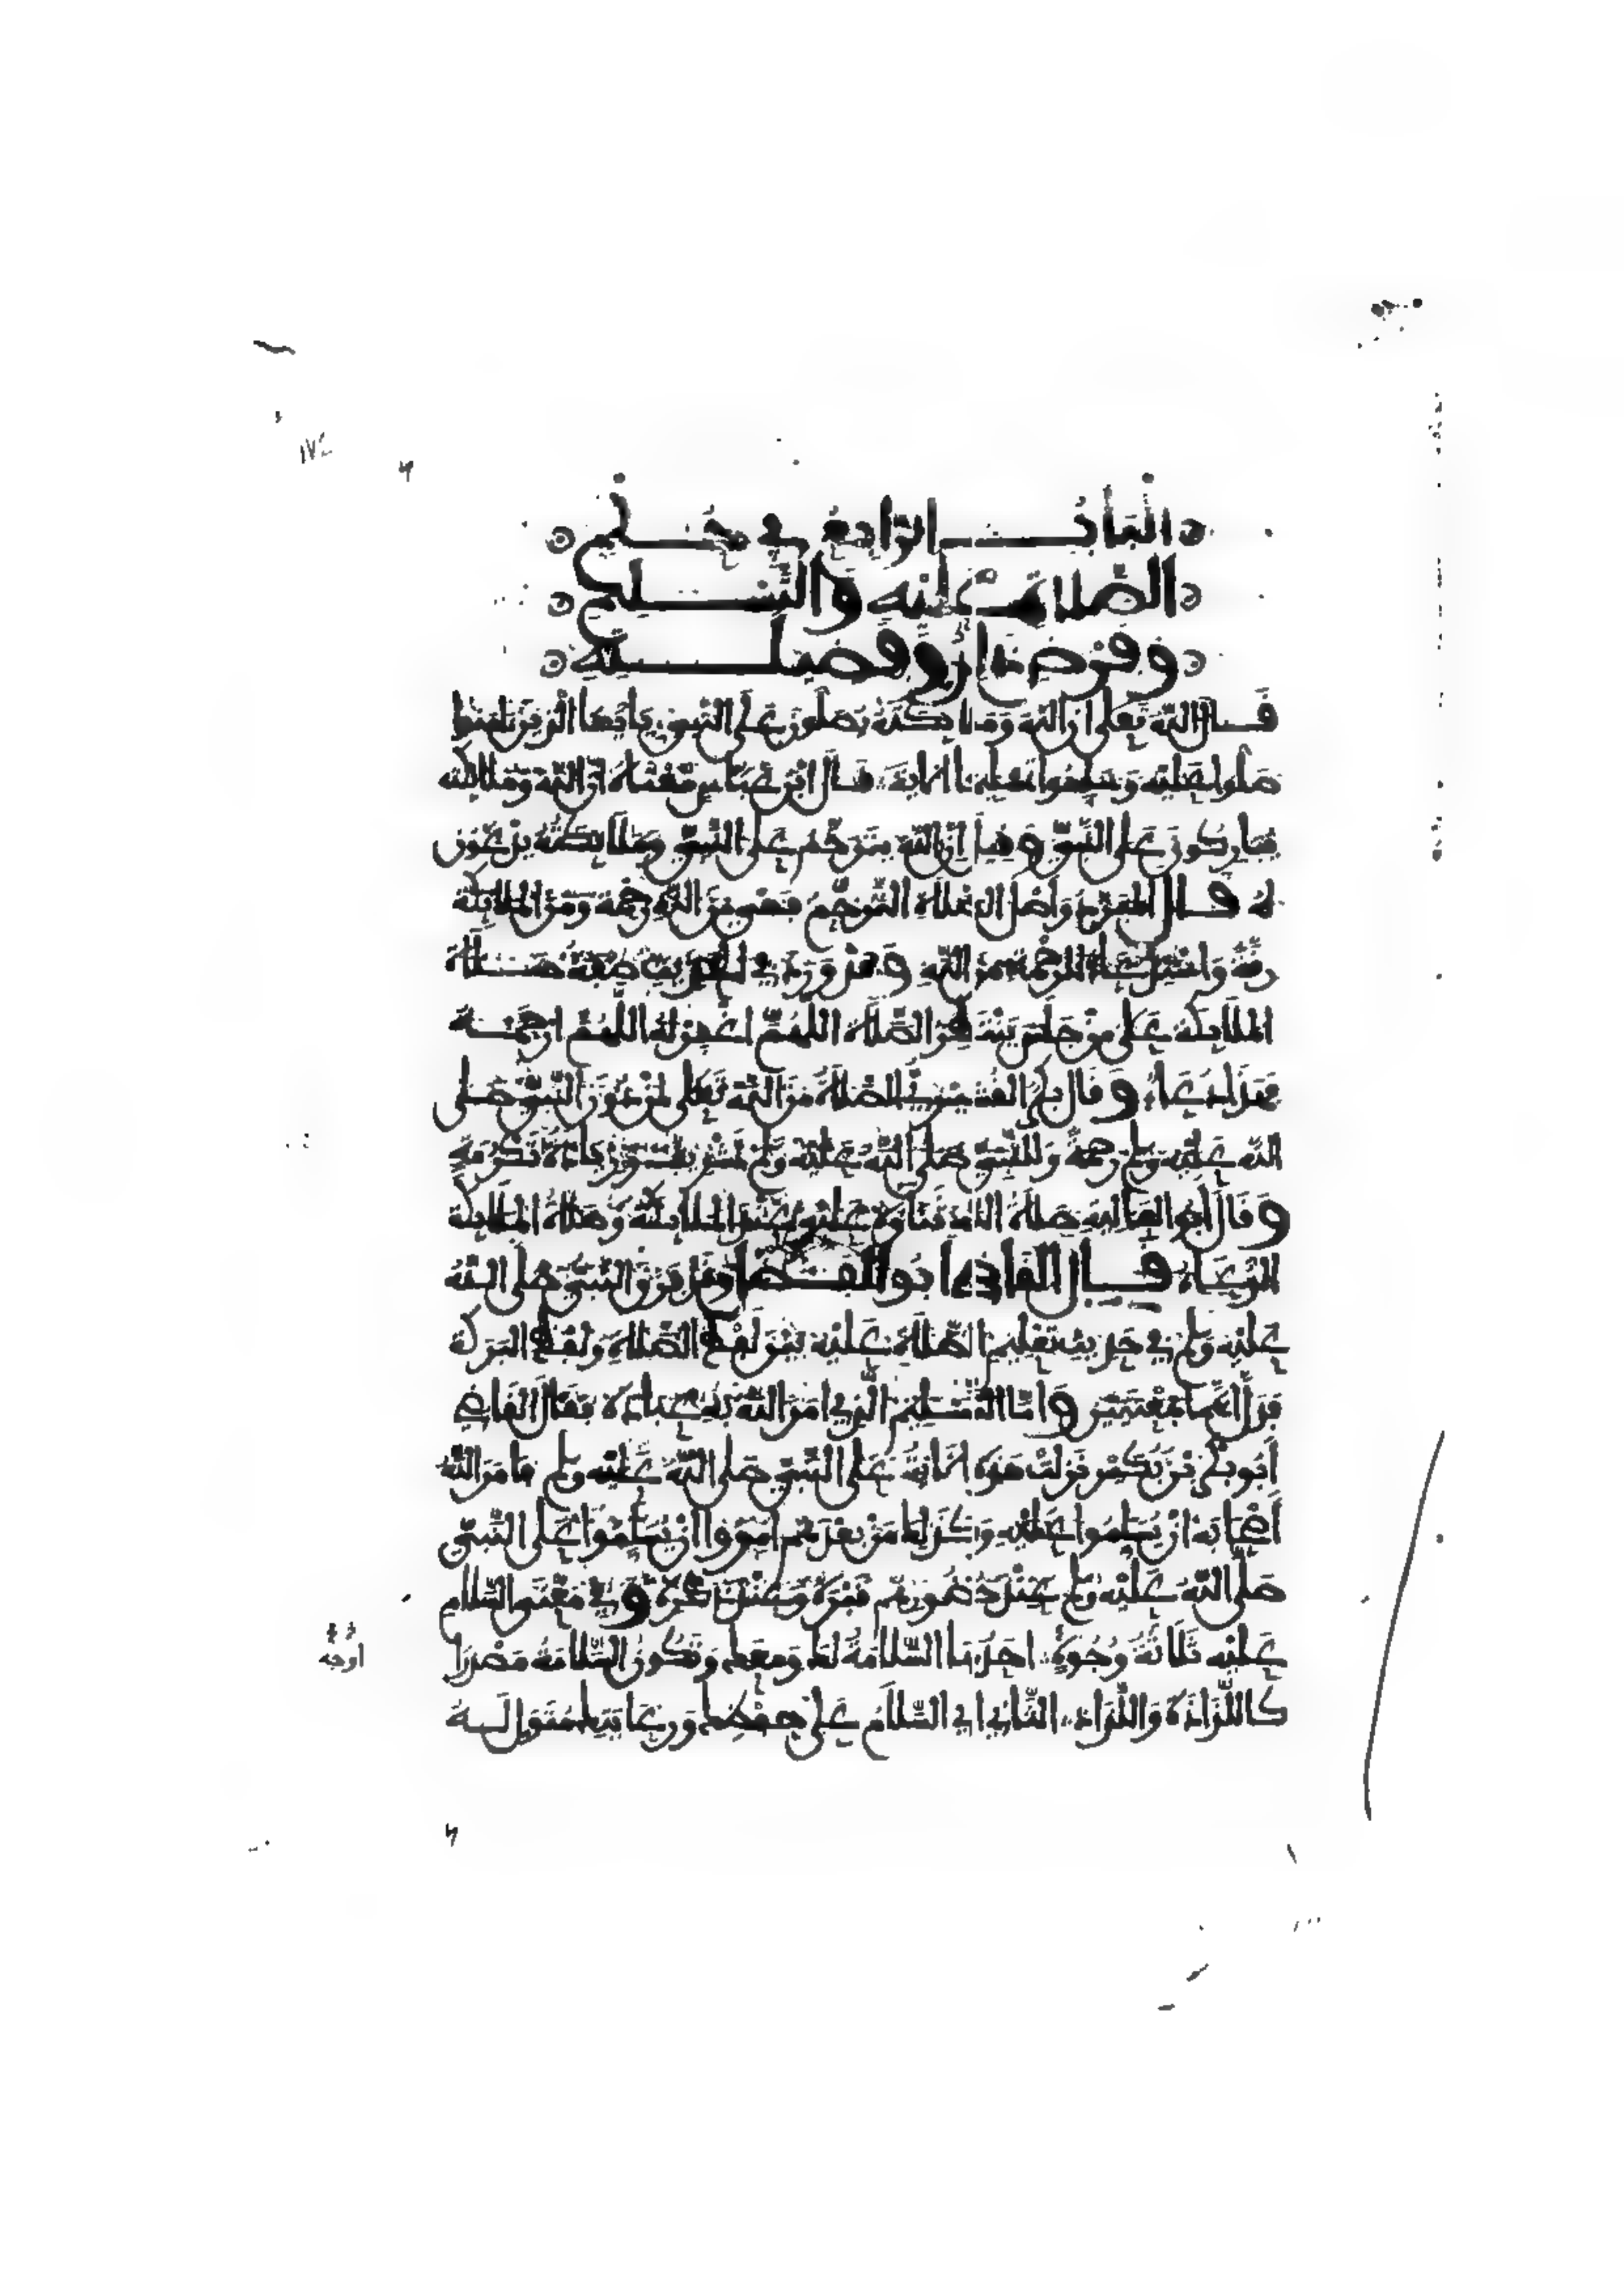 الباب الرابع في حكم
الصلاة عليه والتسليم
وفرض ذلك وفضيلته
قال الله تعلى ان الله وملايكته يصلون على النبي يايها الذين ءامنوا
صلوا عليه وسلموا تسليما الاية قال ابن عباس معناه ان الله وملايكته
يباركون على النبي وقيل ان الله يترحم على النبي وملايكته يدعون
له قال المبرد واصل الصلاة الترحم فهي من الله رحمة ومن الملايكة
رقة واستدعاء للرحمة من الله وقد ورد في الحديث صفة صلاة
الملايكة على من جلس ينتظر الصلاة اللهم اغفر له اللهم ارحمه
فهذا دعاء وقال بكر القشيري الصلاة من الله تعلى لمن دون النبي صلى
الله عليه وسلم رحمة وللنبي صلى الله عليه وسلم تشريف وزيادة تكرمة
وقال ابو العالية صلاة الله ثناؤه عليه عند الملايكة وصلاة الملايكة
الدعاء قال القاضي ابو الفضل وقد فرق النبي صلى الله
عليه وسلم في حديث تعليم الصلاة عليه بين لفظ الصلاة ولفظ البركة
فدل انهما بمعنيين واما التسليم الذي امر الله به عباده فقال القاضي
ابو بكر بن بكير نزلت هذه الاية على النبي صلى الله عليه وسلم فامر الله
اصحابه ان يسلموا عليه وكذلك من بعدهم امروا ان يسلموا على النبي
صلى الله عليه وسلم عند حضورهم قبره وعند ذكره وفي معنى السلام
عليه ثلاثة وجوه احدها السلامة لك ومعك وتكون السلامة مصدرا
كاللذاذة واللذاذ الثاني اي السلام على حفظك ورعايتك متول له
اوجه